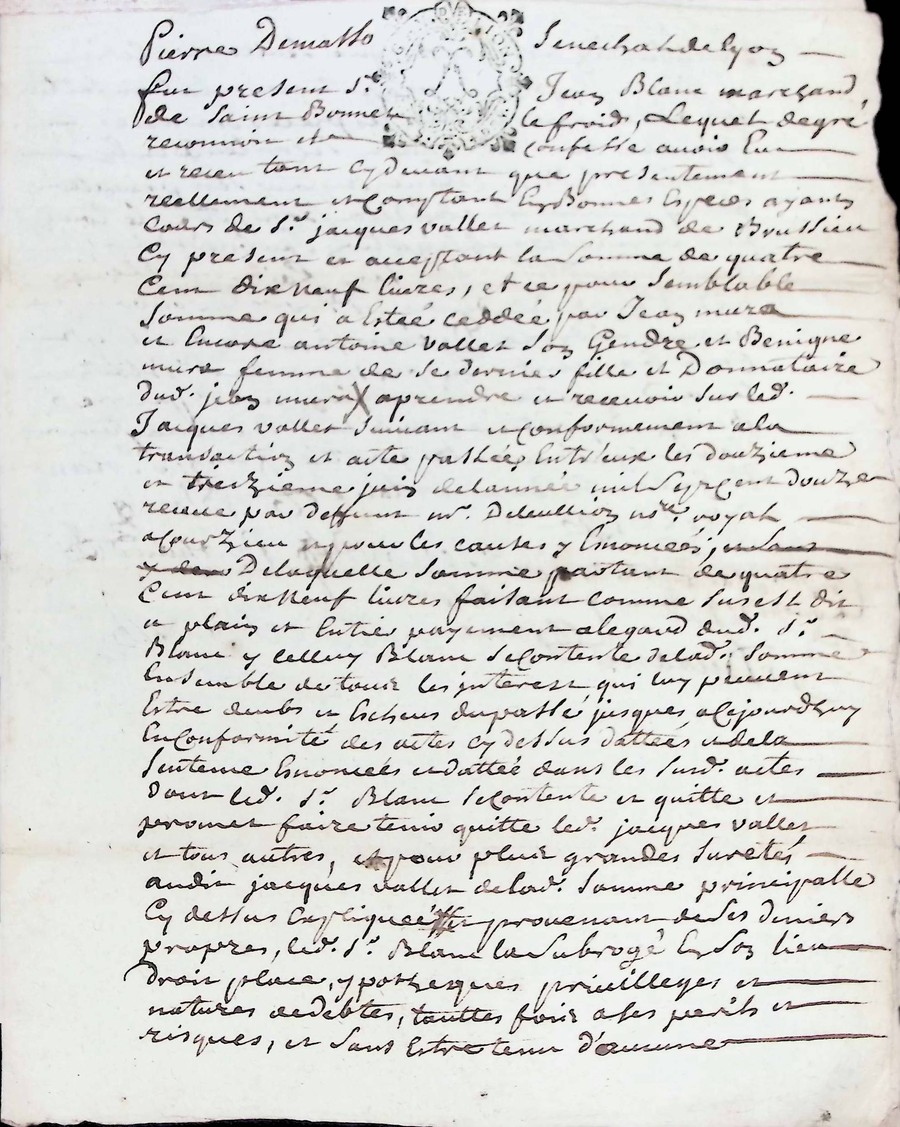 Pierre Demasso Senechal de lyon
fut present Sr. Jean Blanc marchand
de Saint Bonnet le froid, Lequel de gré
reconnoit et confesse avoir Eu
et receu tant cy devant que presentement
reellement et comptant En Bonnes Especes ayant
cours de Sr. jacques vallet marchand de Brussieu
Cy present et acceptant la Somme de quatre
Cent dix neuf livres, et ce pour Semblable
Somme qui a Estée ceddée par Jean mura
et Encore antoine vallet Son Gendre et Benigne
mura femme de ce dernier fille et Donnataire
dud. jean mura aprendre et recevoir Sur led.
Jacques vallet Suivant et conformement a la
transaction et acte passée Entr'eux les douzieme
et treizieme juin de lannée mil Sept Cent Douze
receue par deffunt me. nre. royal
a Courzieu et pour les causes y Enoncées
Delaquelle Somme partant de quatre
Cent dix neuf livres faisant comme Sus est dit
a plain et Entier payement a legard dud. Sr.
Blanc y celluy Blanc Se Contente de lad. Somme
Ensemble de tous les interest qui luy peuvent
Estre deubs et Escheus du passé jusques a Cejourdhuy
En Conformité des actes cy dessus dattées et de la
Sentence Enoncées et dattée dans les Susd. actes
Dont led. Sr. Blanc Se Contente et quitte et
promet faire tenir quitte led. jacques vallet
et tous autres, et pour plus grandes Suretés
audit jacques vallet de lad. Somme principalle
Cy dessus Expliquée et provenant de Ses deniers
propres, led. Sr. Blanc la Subrogé En Son lieu
Droit place, ypotheques privilleges et
natures de debtes, touttes fois a Ses perils et
risques, et Sans Estre tenu d'aucune